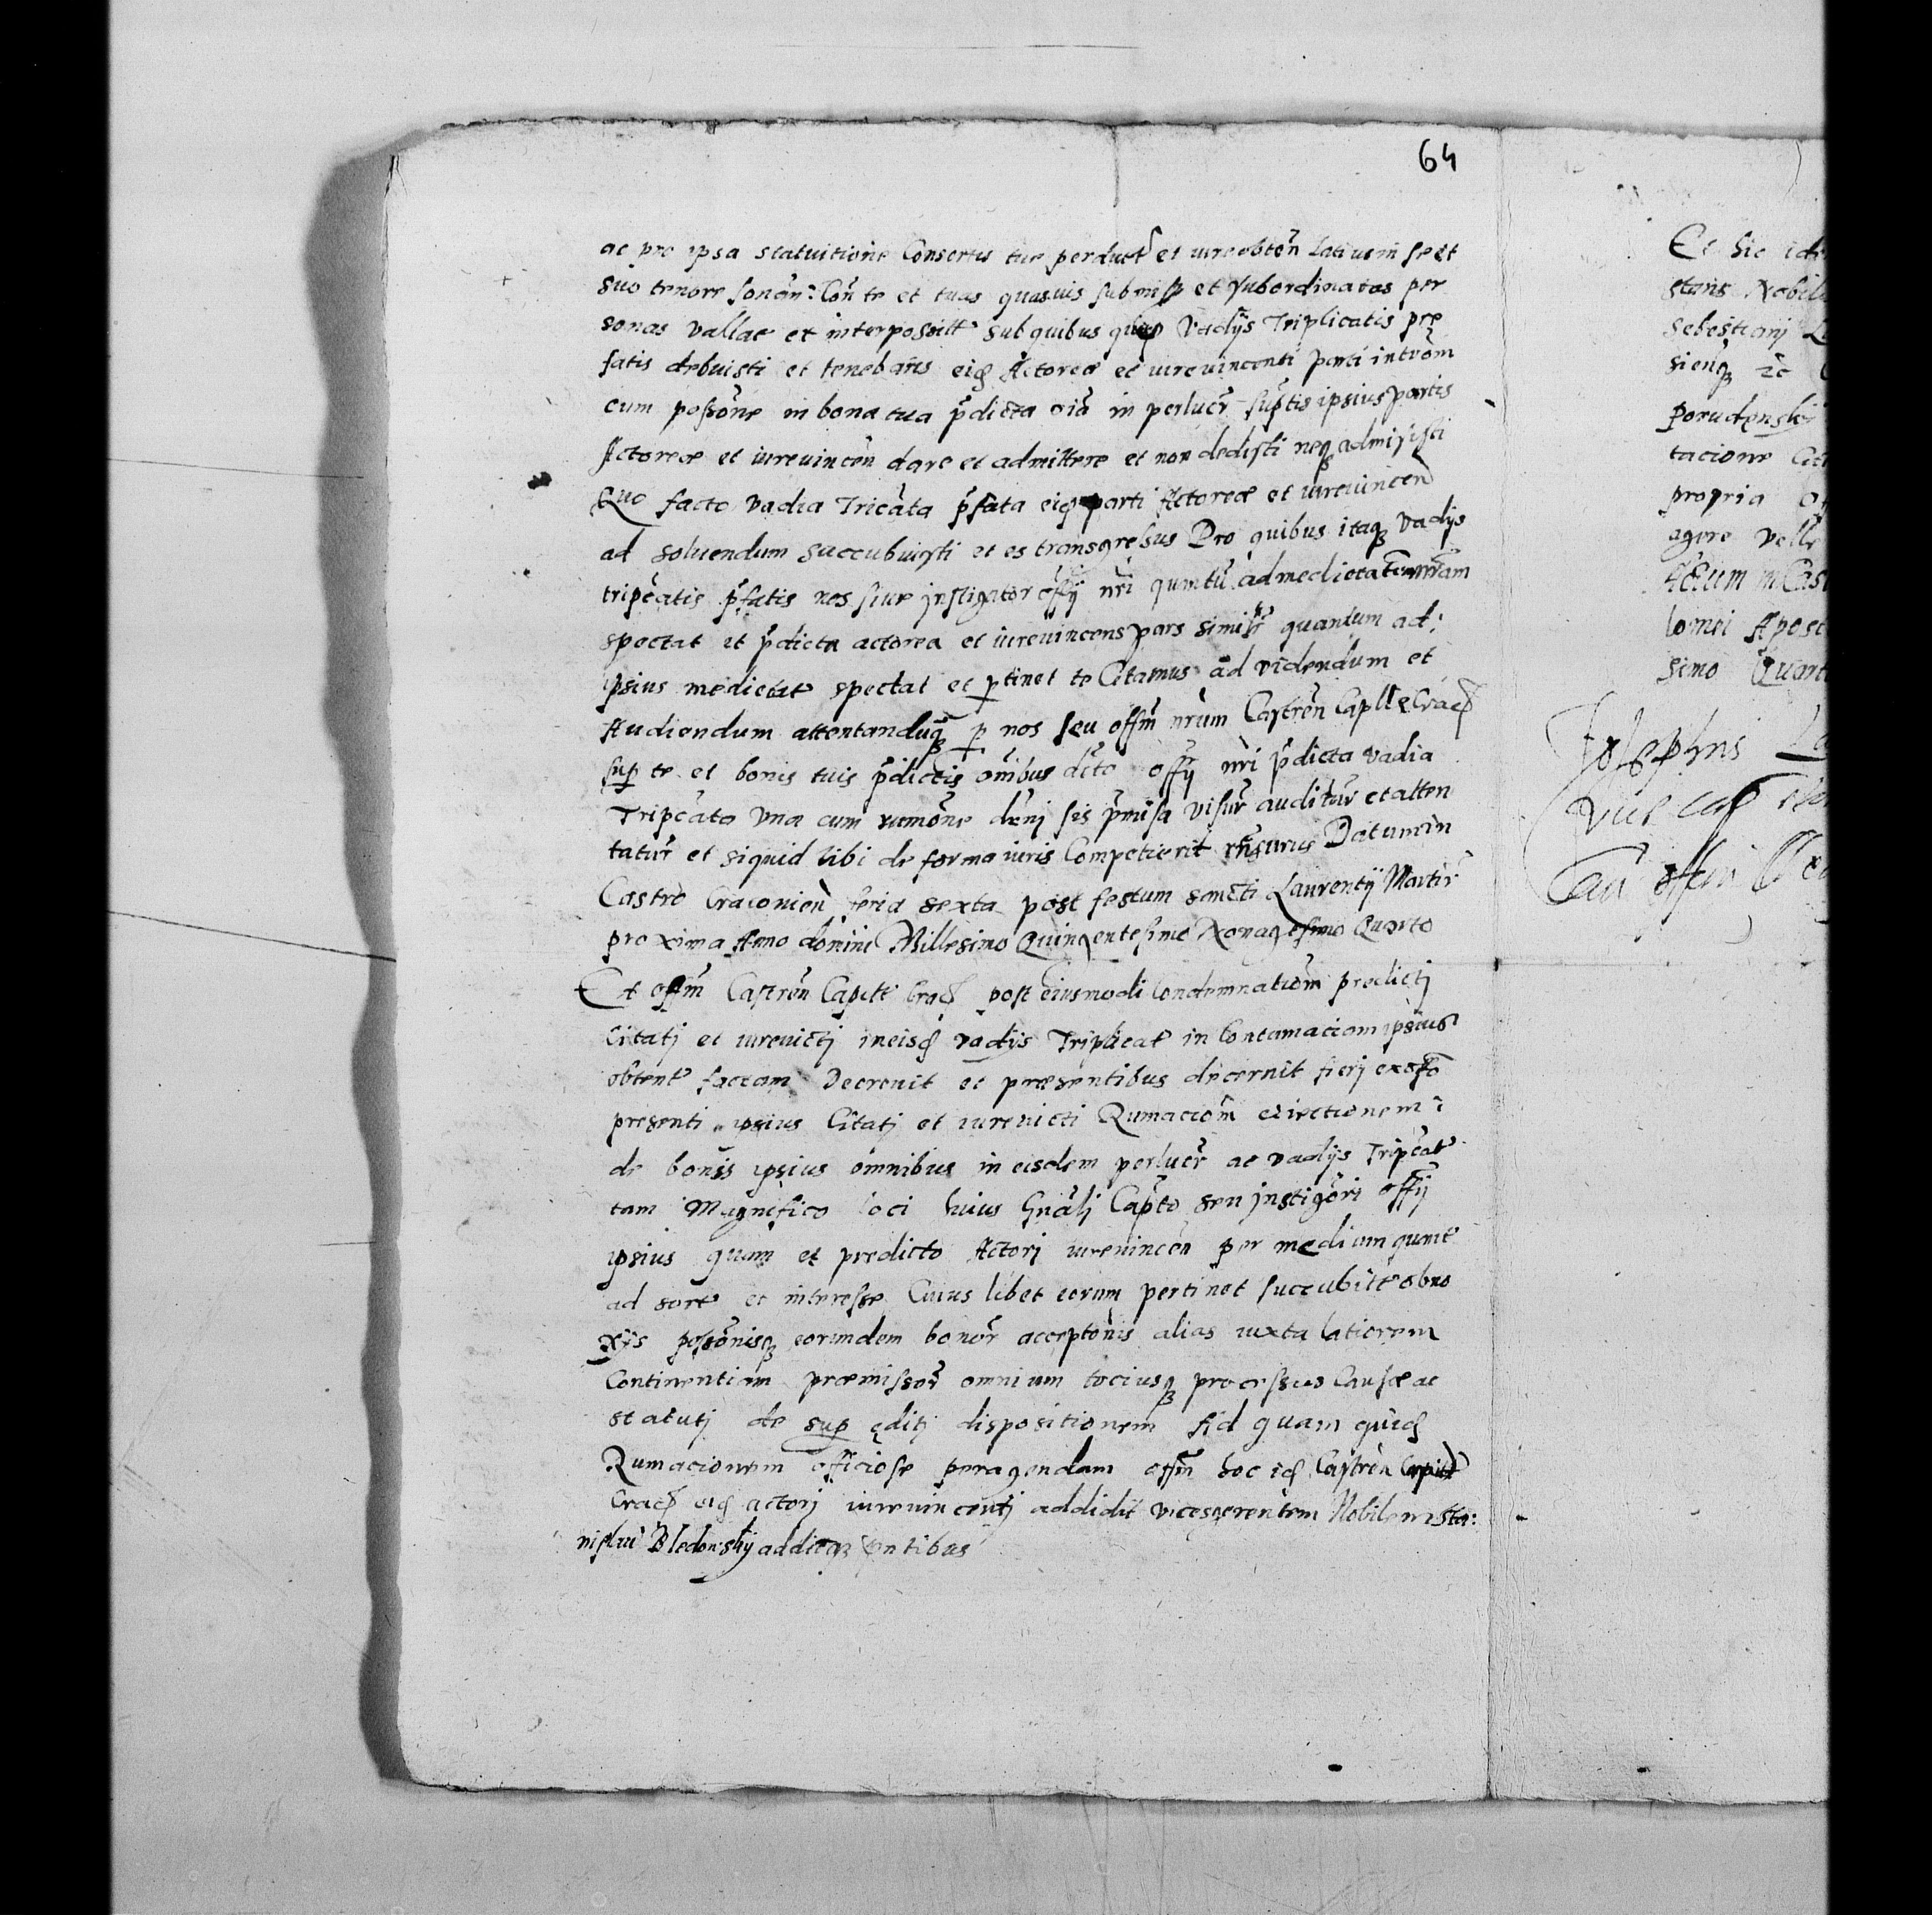 64
ac pro ipsa statuitione Consortis tue perduct et iureobten̄ Latius in se et
suo tenore sonān: Con̄ te et tuas quasuis submiss et subordinatas per
sonas vallat et interposit sub quibus quid vadijs Triplicatis pre
fatis debuisti et tenebaris eid Actoreæ et iurevincenti parti introm̄
cum possōne in bona tua p̄dicta oīa in perlucr̄ sup̄tis ipsius partis
Actoreæ et iurevincen̄ dare et admittere et non dedisti neq admisisti
Quo facto vadia Tricāta p̄fata eid parti Actoreæ et iurevincen
ad soluendum succubuisti et es transgressus Pro quibus itaq vadijs
tripcatis p̄fatis nos siue instigator offij nr̄i quantū ad medietatem nr̄am
spectat et p̄dicta actorea et iurevincens pars similr̄ quantum ad:
ipsius medietat spectat et ptinet te Citamus ad videndum et
Audiendum attentanduq p nos seu offm̄ nrūm Castren̄ Capitle Crac
sup te et bonis tuis p̄dictis om̄ibus dcto offij nr̄i p̄dicta vadia
Tripcāta vna cum rumōne dēnj sis p̄missa visur̄ auditur̄ et atten
tatur̄ et siquid tibi de forma iuris Competierit rn̄surus Datum in
Castro Cracouien̄ feria sexta post festum sancti Laurentij Martir̄
proxima Anno domini Millesimo Quingentesimo Nonagesimo Quarto
Et offm̄ Castren̄ Capitle Crac post eiusmodi Condemnatiom̄ predictj
Citatj et iurevictj in eisd vadijs Triplicat in Contamaciam ipsius
obtent factam Decrevit et præsentibus decernit fierj ex offo
presenti ipsius Citatj et iurevicti Rumaciom̄ eiectionem
de bonis ipsius omnibus in eisdem perlucr̄ ac vadijs Tripcat
tam Magnifico loci huius Gnālj Capto seu instigōri offij
ipsius quam et predicto Actorj iurevincen per medium quant
ad sort et interesse Cuius libet eorum pertinet succubit obno
xijs possōnisq eorundem bonor̄ acceptōnis alias iuxta latiorem
Continentiam præmissor̄ omnium tociusq processus Causæ ac
statutj de sup editj dispositionem Ad quam quid
Rumacionem officiose peragendam offm̄ hoc id Castren Capitle
Crac eid actorj iurevincentj addidit vicesgerentem Nobilem Sta:
nislau Bledowskij additq
Et hic
stans Nobil
Sebestianj
sienq
Porudenski
tacione
propria
agere velle
Actum in Cas
lomei Apost
simo Quart
Josephus